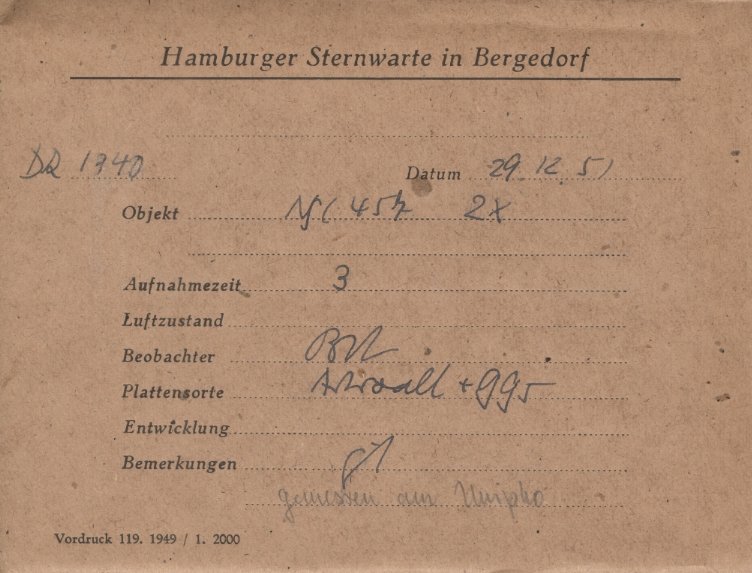 Hamburger Sternwarte in Bergedorf
DR 1740 Datum 29.12.51
Objekt 2x
Aufnahmezeit 3
Luftzustand
Beobachter
Plattensorte + GG5
Entwicklung
Bemerkungen
gemessen am Unipho
Vordruck 119. 1949 / 1. 2000